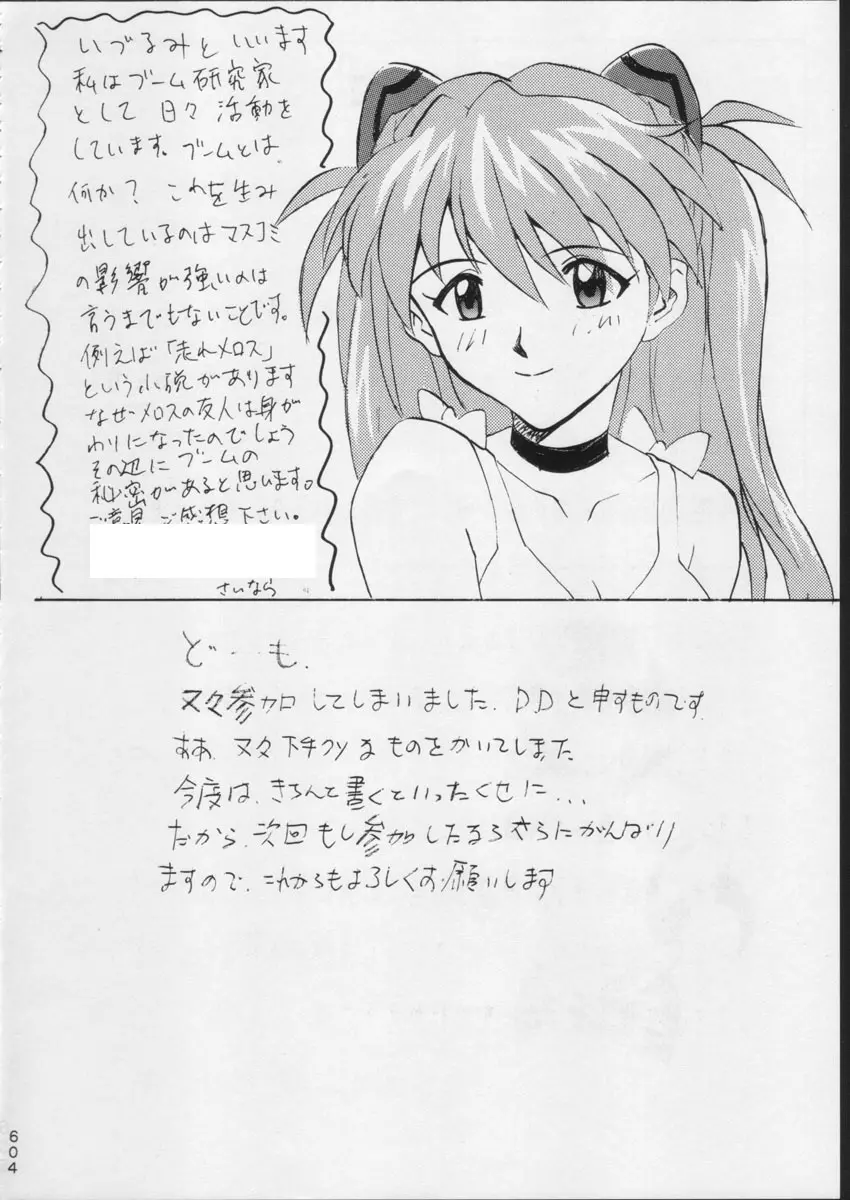 いづるみと いいます
私はブーム研究家
として 日々 活動を
しています。ブームとは
何か? これを生み
出しているのはマスコミ
の影響が強いのは
言うまでもないことです。
例えば「走れメロス」
という小説があります
なぜメロスの友人は身が
わりになったのでしょう
その辺に ブームの
秘密があると思います。
ご意見 ご感想 下さい。
さいなら
ど……も、
又々参加してしまいました、D.Dと申すものです
ああ、又々 下手クソなものをかいてしまた
今度は、きちんと書くといったくせに...
だから、次回もし参加したるらさらにがんばり
ますので、これからもよろしくお願いします
604